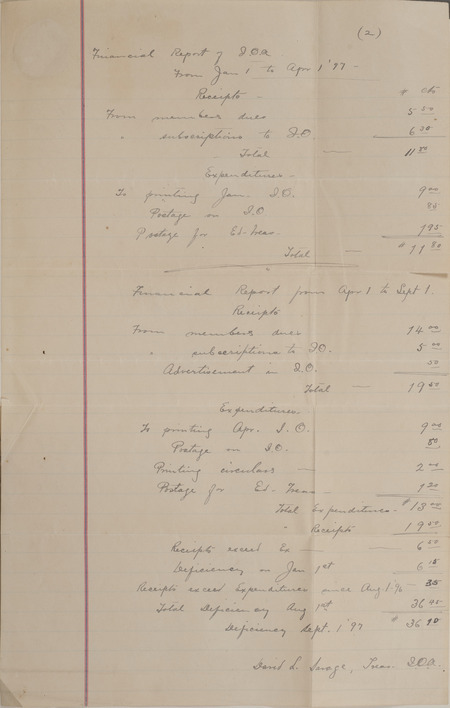 (2)
Financial Report of I.O.A.
From Jan 1 to Apr 1 '97 -
Receipts - $ cts
From members dues 5 50
" subscriptions to I.O. 6 30
Total — 11 80
Expenditures -
To printing Jan. I.O. 9 00
Postage on I.O.
Postage for Ed. Treas. 1 95
Total — $ 11 80
Financial Report from Apr 1 to Sept 1.
Receipts
From members dues 14 00
" subscriptions to I.O. 5 00
Advertisement in I.O. 50
Total — 19 50
Expenditures
To printing Apr. I.O. 9 00
Postage on I.O. 80
Printing circulars — 2 00
Postage for Ed. Treas — 1 20
Total Expenditures - $ 13 00
" Receipts 19 50
Receipts exceed Ex — 6 50
Deficiency on Jan 1st 6 15
Receipts exceed Expenditures since Aug 1 '96 — 35
Total Deficiency Aug 1st
Deficiency Sept. 1 '97 $ 36
David L. Savage, Treas. I.O.A.